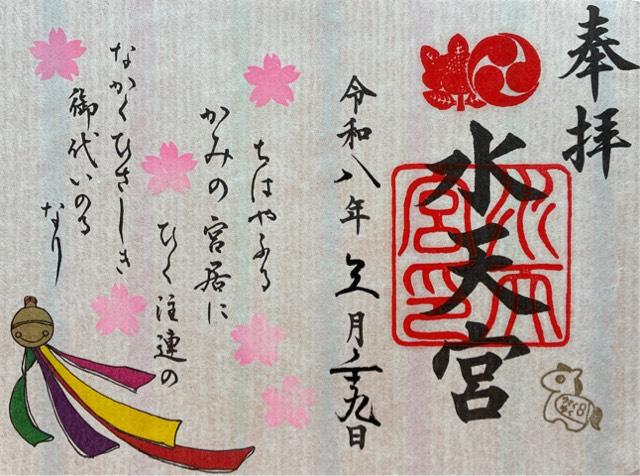 奉拝
水天宮
水天宮印
令和八年三月二十九日
ちはやふる
かみの宮居に
ひく注連の
なかくひさしき
御代いのる
なり